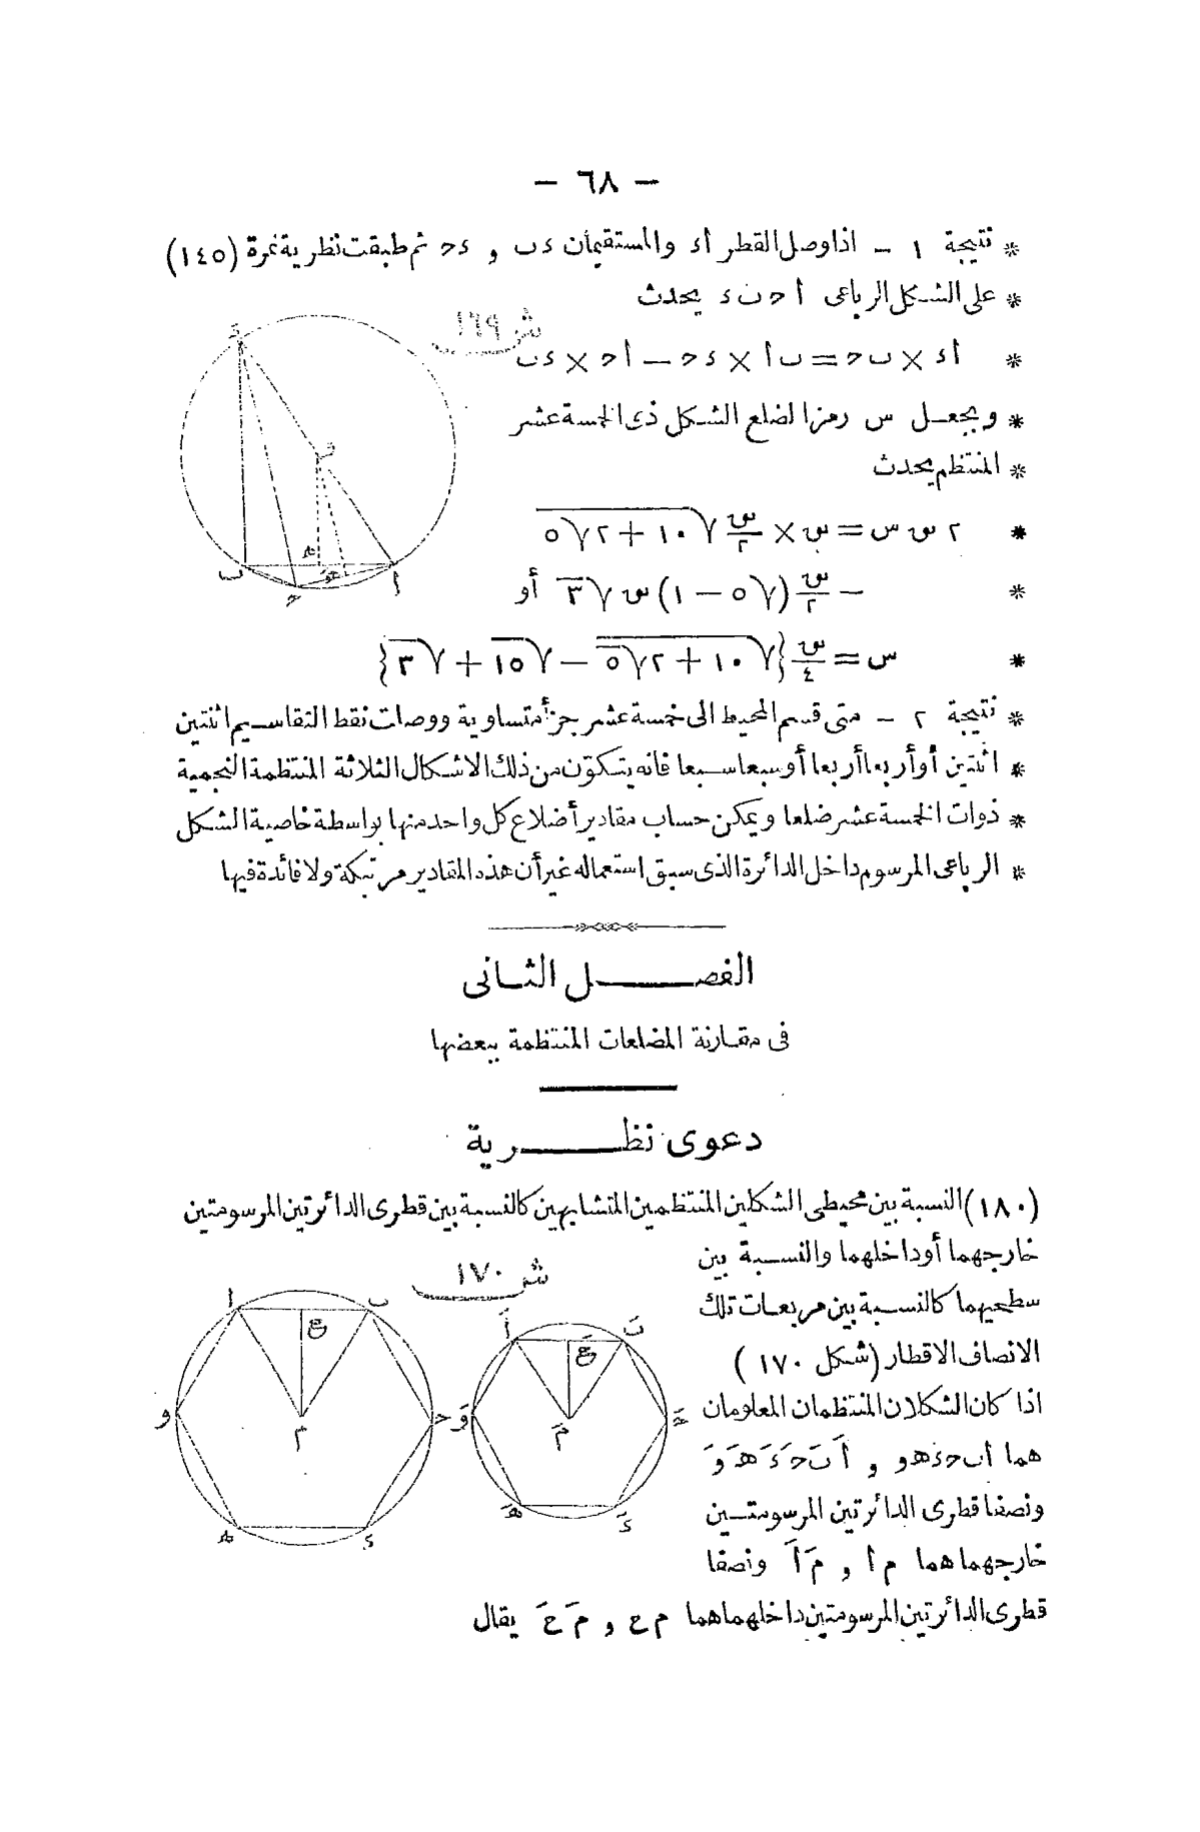 — ٦٨ —
* نتيجة ١ — اذا وصل القطر أء والمستقيمان ءب و ءح ثم طبقت نظرية نمرة (١٤٥)
* على الشكل الرباعى أحبء يحدث
ش ١٦٩
* أء × بح = بأ × ءح — أح × ءب
* وبجعل س رمزا لضلع الشكل ذى الخمسة عشر
* المنتظم يحدث
* ٢ س س = س × س/٢ √(١٠ + ٢√٥)
* — س/٢ (√٥ — ١) س √٣ أو
* س = س/٤ {√(١٠ + ٢√٥) — √١٥ + √٣}
* نتيجة ٢ — متى قسم المحيط الى خمسة عشر جزأ متساوية ووصلت نقط التقاسيم اثنتين
* اثنتين أو أربعا أربعا أو سبعا سبعا فانه يتكوّن من ذلك الاشكال الثلاثة المنتظمة النجمية
* ذوات الخمسة عشر ضلعا ويمكن حساب مقادير أضلاع كل واحد منها بواسطة خاصية الشكل
* الرباعى المرسوم داخل الدائرة الذى سبق استعماله غير أن هذه المقادير مرتبكة ولا فائدة فيها
ء
م
ه
ب
ح
أ
الفصل الثانى
فى مقارنة المضلعات المنتظمة ببعضها
دعوى نظرية
(١٨٠) النسبة بين محيطى الشكلين المنتظمين المتشابهين كالنسبة بين قطرى الدائرتين المرسومتين
خارجهما أو داخلهما والنسبة بين
سطحيهما كالنسبة بين مربعات تلك
الانصاف الاقطار (شكل ١٧٠)
اذا كان الشكلان المنتظمان المعلومان
هما أبحءهو و أَبَحَءَهَوَ
ونصفا قطرى الدائرتين المرسومتين
خارجهما هما مأ و مَأَ ونصفا
قطرى الدائرتين المرسومتين داخلهما هما مع و مَعَ يقال
ش ١٧٠
ا ب
ع
و م ح
ه ء
أَ بَ
عَ
وَ مَ حَ
هَ ءَ